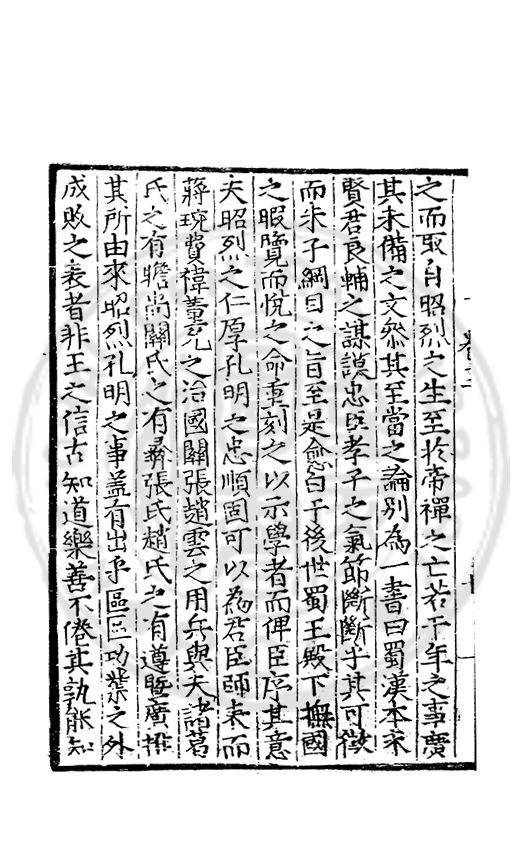 之而取自昭烈之生至於帝禪之亡若干年之事廣
其未備之文叅其至當之論別為一書曰蜀漢本末
賢君良輔之謀謨忠臣孝子之氣節斷斷乎其可徵
而朱子綱目之旨至是愈白于後世蜀王殿下撫國
之暇覽而悅之命重刻之以示學者而俾臣序其意
夫昭烈之仁厚孔明之忠順固可以為君臣師表而
蔣琬費禕董允之治國關張趙雲之用兵與夫諸葛
氏之有瞻尚關氏之有彝張氏趙氏之有遵暨廣推
其所由來昭烈孔明之事盖有出乎區區功業之外
成敗之表者非王之信古知道樂善不倦其孰能知